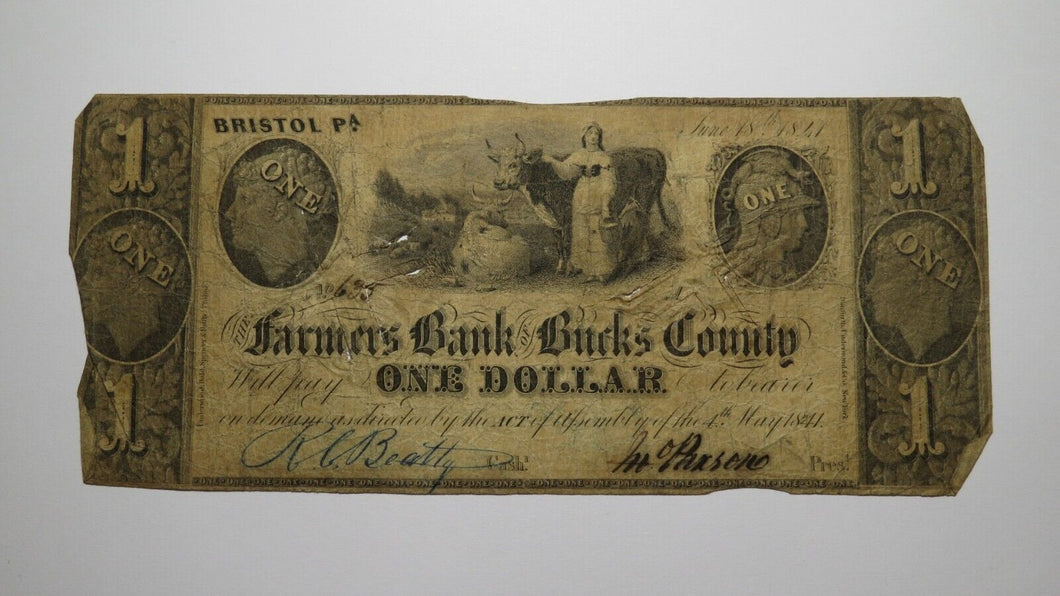 ONE-ONE-ONE-ONE-ONE-ONE-ONE-ONE
1 BRISTOL PA. June 18th 1841 1
ONE ONE
ONE ONE
THE Farmers Bank OF Bucks County
Will pay ONE DOLLAR to bearer
on demand as directed by the ACT of Assembly of the 4th May 1841.
1 1
R C Beatty Cash.r Pres.t
ONE-ONE-ONE-ONE-ONE-ONE-ONE-ONE